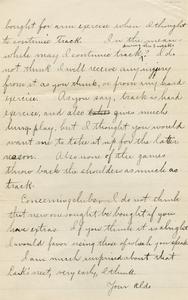 bought for arm exercise when I thought
to continue track. In the mean-
while may I continue track? I do
not think I will receive any injury
from it as you think, or from any hard
exercise. As you say, track is hard
exercise, and also gives much
play, but I thought you would
want me to take it up for the later
reason. Also none of the games
throw back the shoulders as much as
track.
Concerning clubs. I do not think
that new ones ought be bought if you
have extras. If you think it is alright
I would favor using those of which you speak.
I am much surprised about that
lark's nest, very early, I think.
Your Aldo